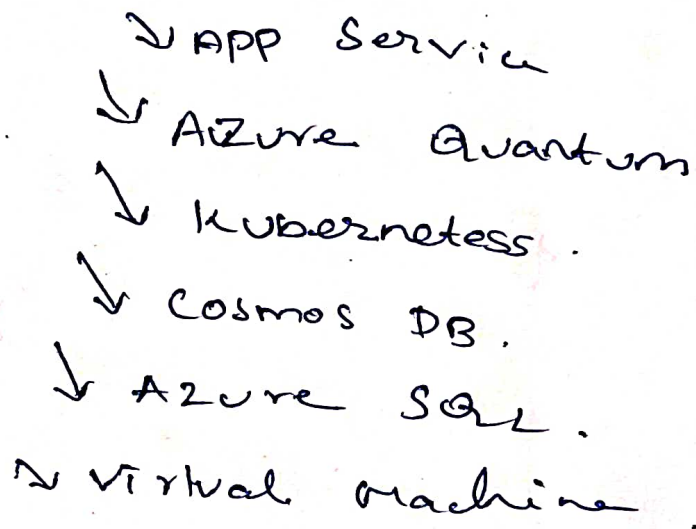 ↘ APP Service
↘ Azure Quantum
↘ Kubernetess.
↘ Cosmos DB.
↘ Azure SQL.
↘ Virtual Machine